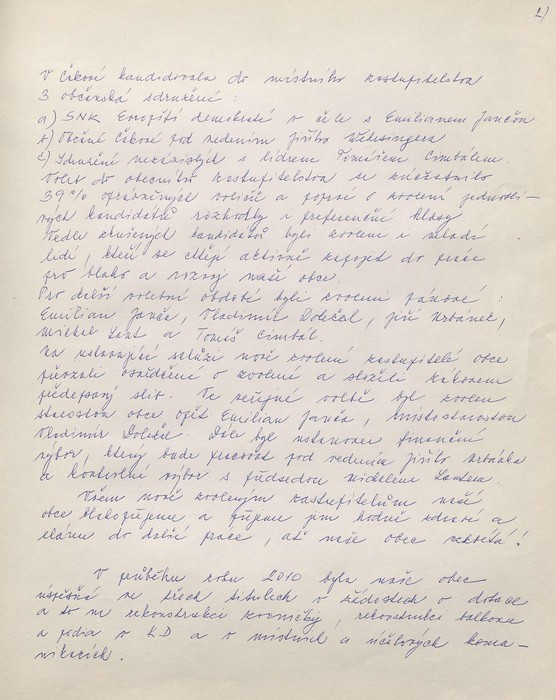 2)
V Čákové kandidovala do místního zastupitelstva
3 občanská sdružení:
a) SNK Evropští demokraté v čele s Emilianem Jančou
b) Občané Čákové pod vedením Jiřího
c) Sdružení nezávislých s lídrem Tomášem Cimbálem.
Voleb do obecního zastupitelstva se zúčastnilo
39% oprávněných voličů a poprvé o zvolení jednotli-
vých kandidátů rozhodly i preferenční hlasy.
Vedle zkušených kandidátů byli zvoleni i mladí
lidé, kteří se chtějí aktivně zapojit do práce
pro blaho a rozvoj naší obce.
Pro další volební období byli zvoleni pánové:
Emilian Janča, Vladimír Doležal, Jiří Urbánek,
Michal Lenz a Tomáš Cimbál.
Na ustavující schůzi nově zvolení zastupitelé obce
převzali osvědčení o zvolení a složili zákonem
předepsaný slib. Ve veřejné volbě byl zvolen
starostou obce opět Emilian Janča, místostarostou
Vladimír Doležal. Dále byl ustanoven finanční
výbor, který bude pracovat pod vedením Jiřího Urbánka
a kontrolní výbor s předsedou Michalem Lenzem.
Všem nově zvoleným zastupitelům naší
obce blahopřejeme a přejeme jim hodně zdraví a
elánu do další práce, ať naše obec vzkvétá!
V průběhu roku 2010 byla naše obec
úspěšná ve třech titulech o žádostech o dotace
a to na rekonstrukci zvoničky, rekonstrukci balkonu
a podia v KD a v místních a účelových komu-
nikacích.